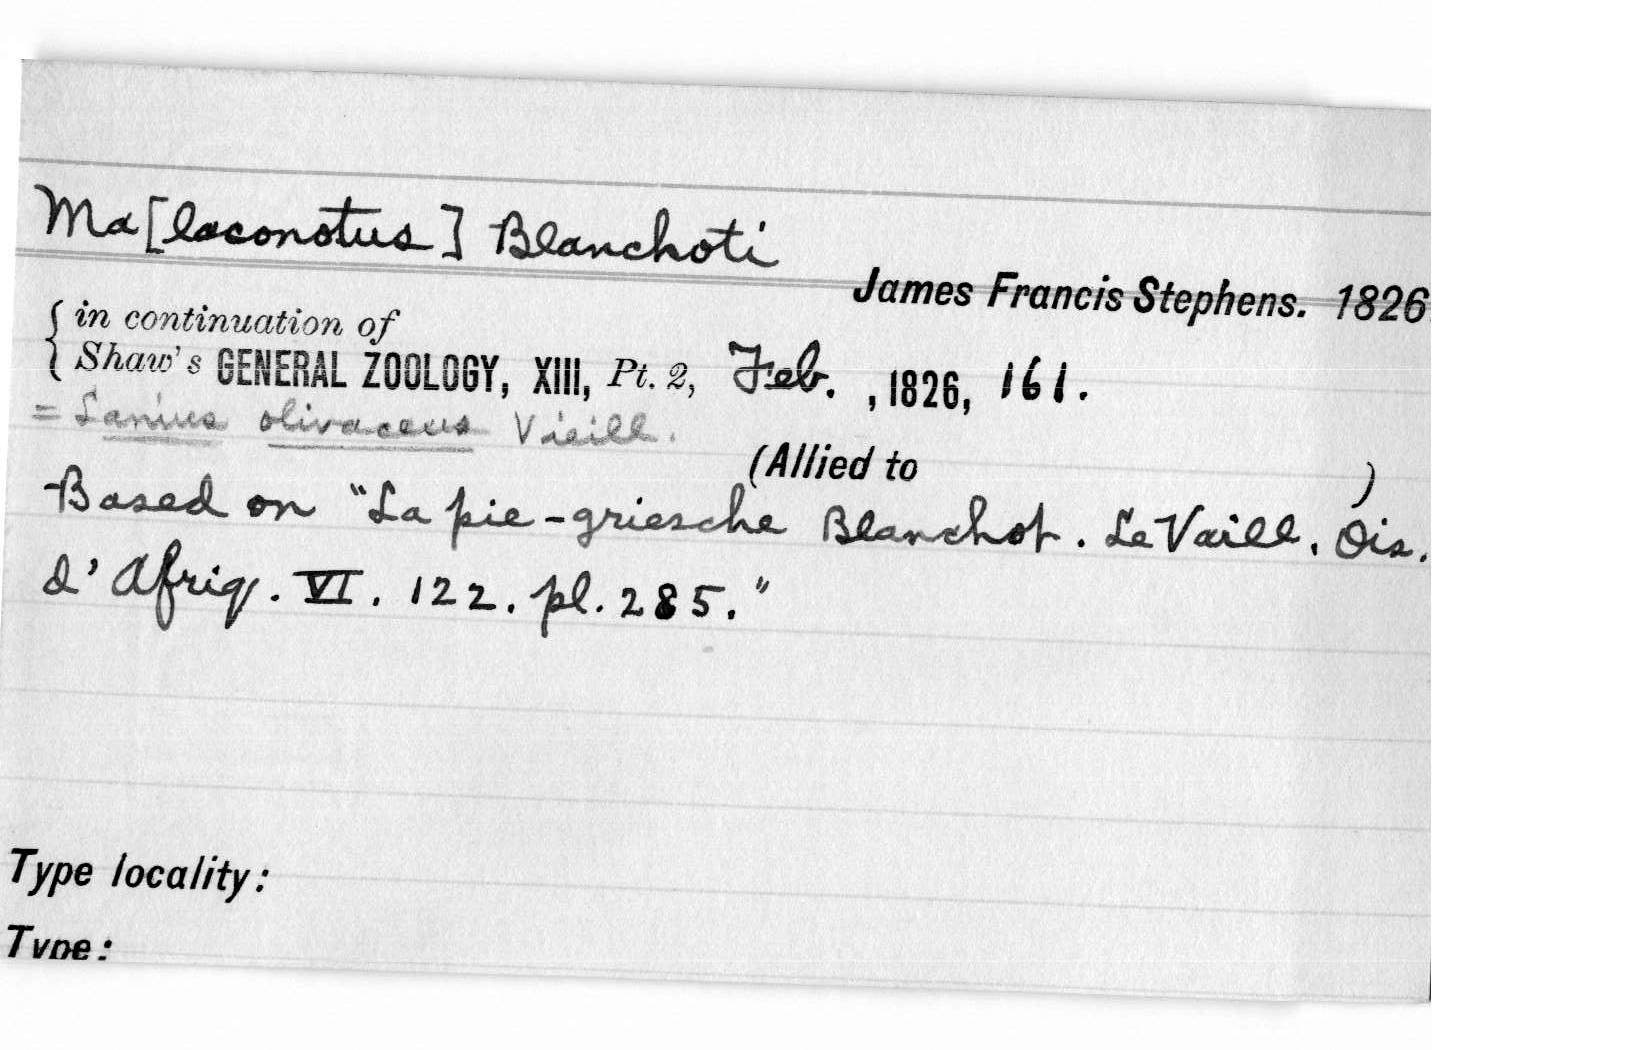 Ma[laconotus] Blanchoti
James Francis Stephens. 1826
{ in continuation of
Shaw's GENERAL ZOOLOGY, XIII, Pt. 2, Feb. , 1826, 161.
= Lanius olivaceus Vieill.
(Allied to )
Based on "La pie-griesche Blanchot. Le Vaill. Ois.
d'Afriq. VI. 122. pl. 285."
Type locality:
Type: